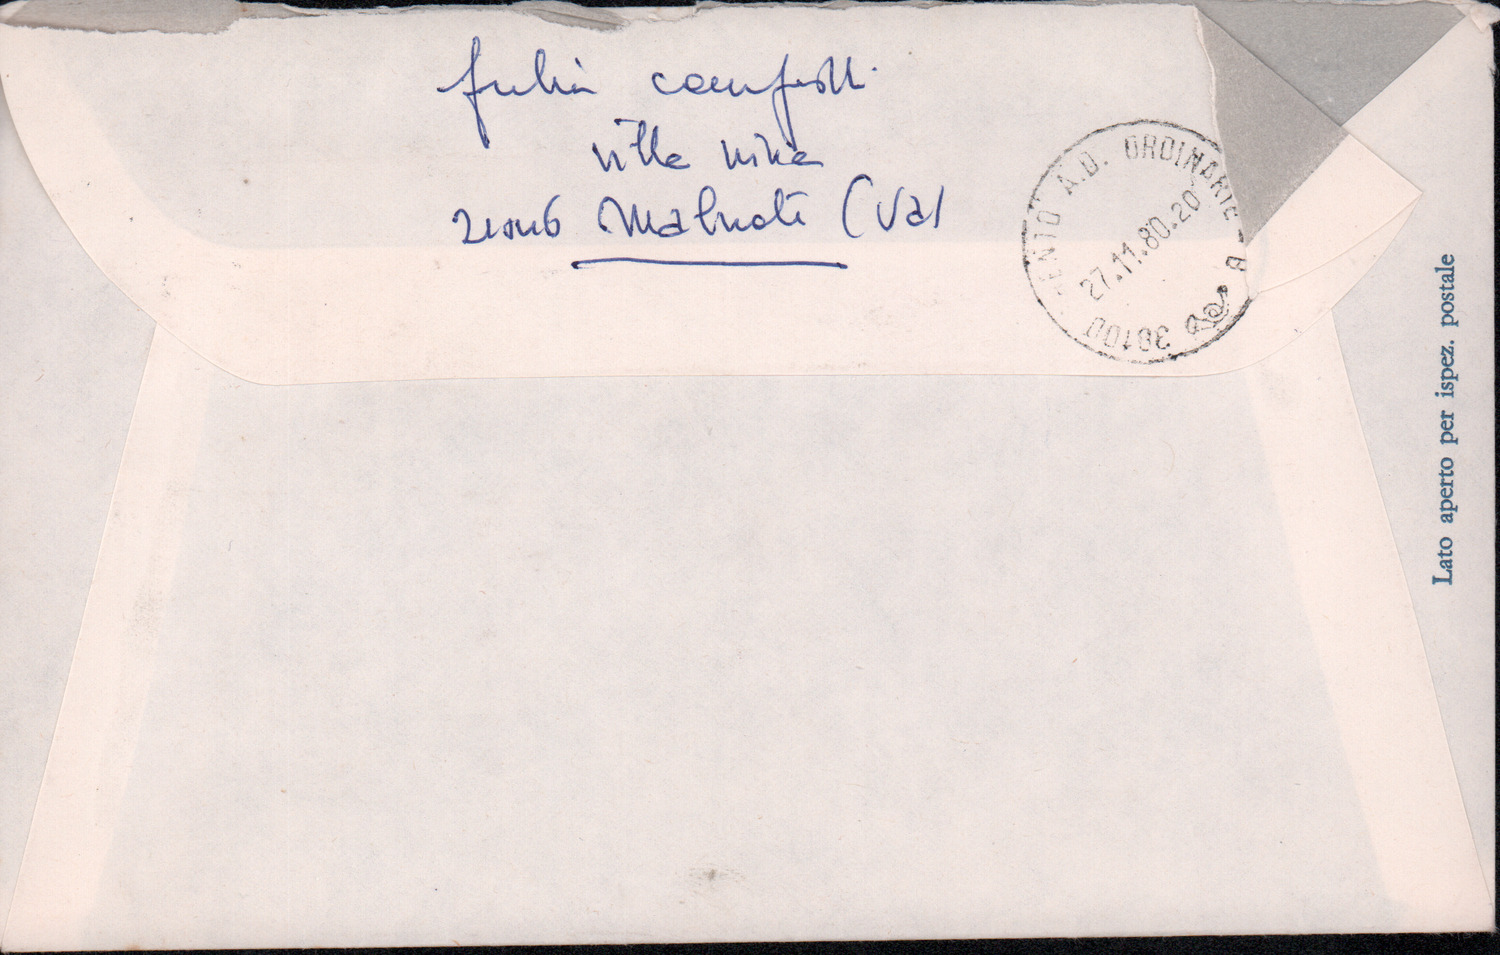 Giulia
villa Nina
21046 Malnate (Va)
TRENTO A.D. ORDINARIE
27.11.80.20
38100
Lato aperto per ispez. postale